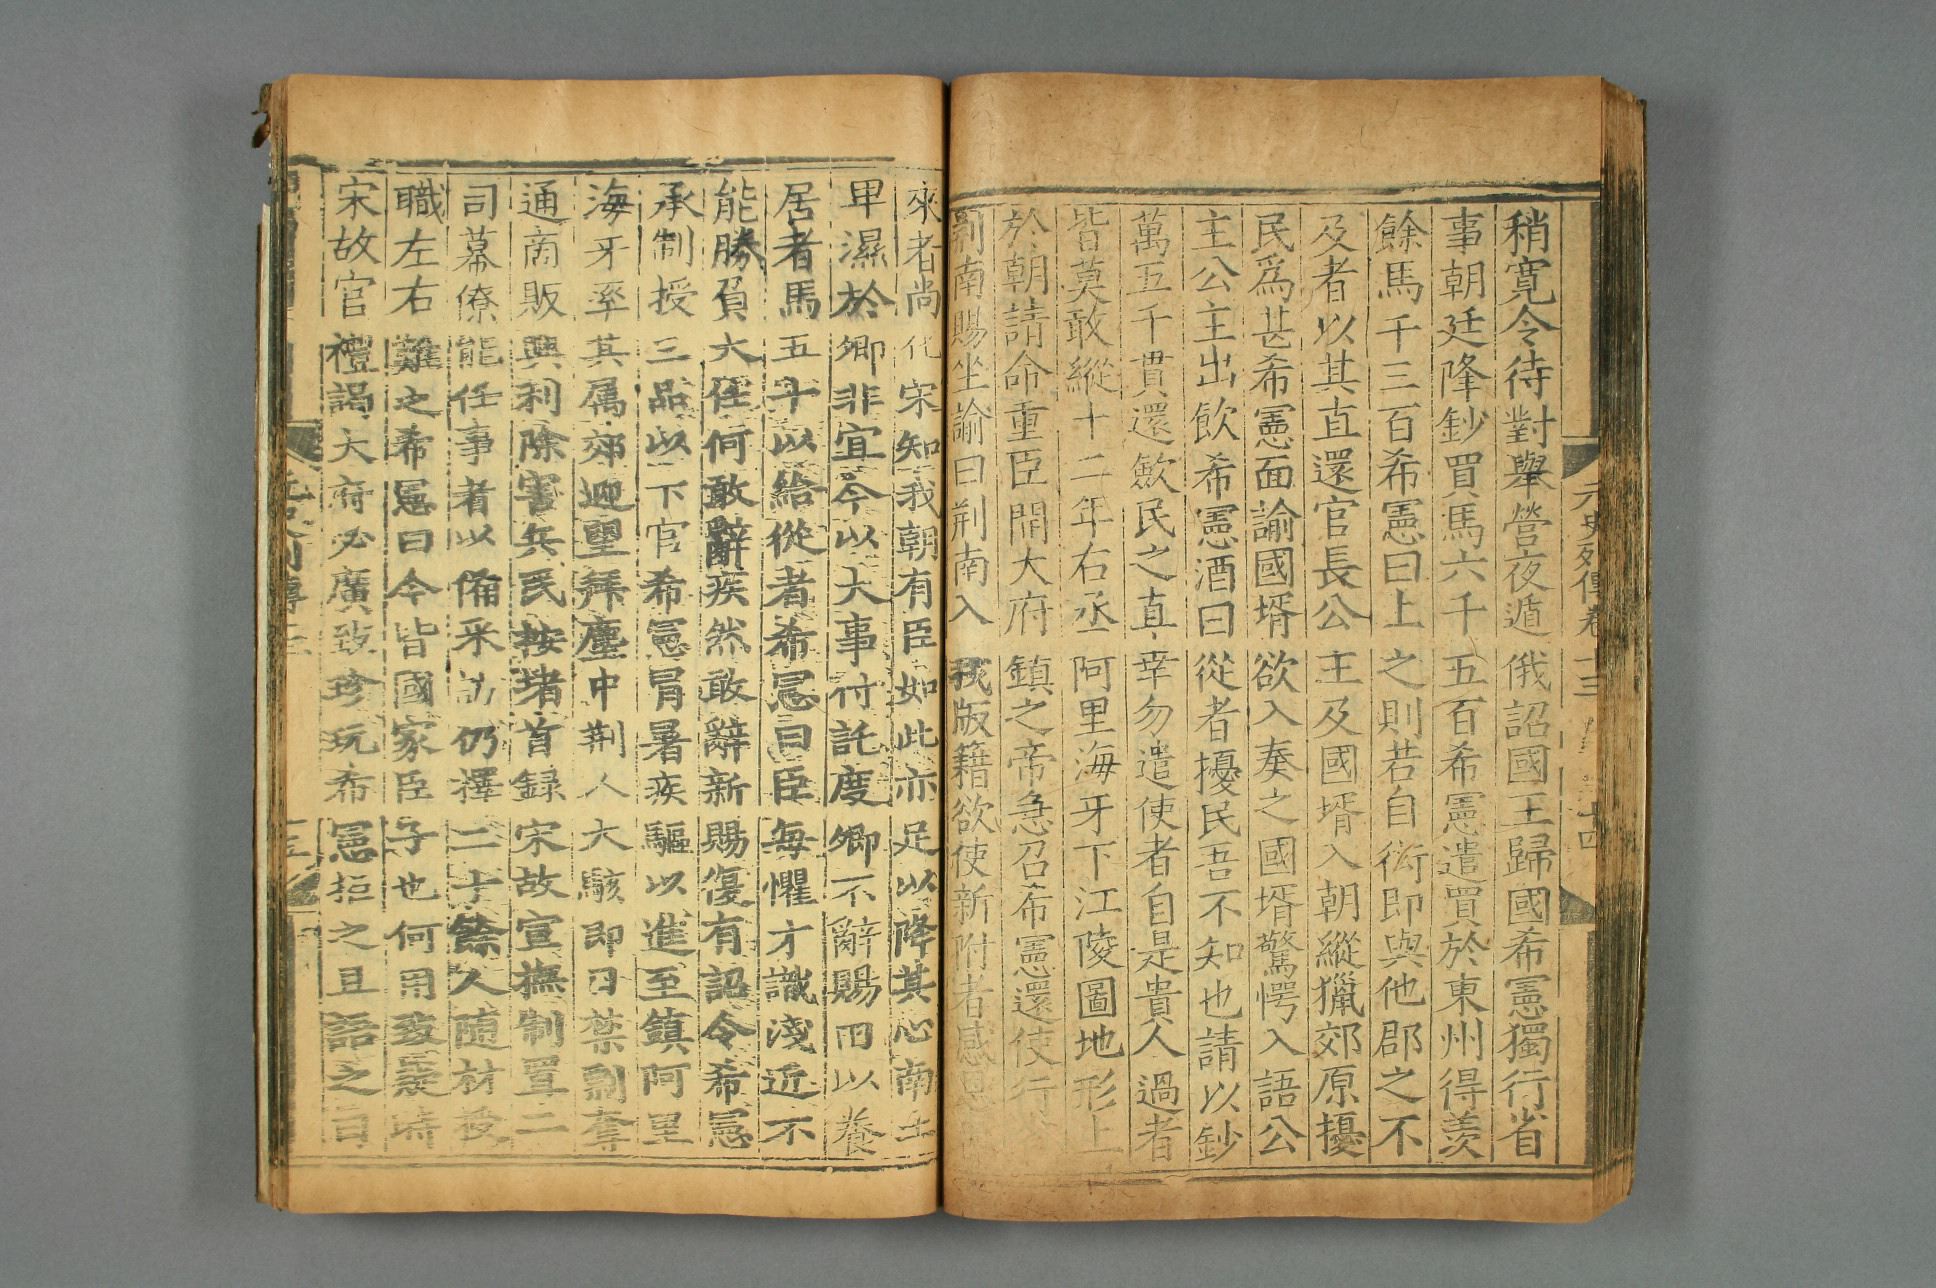 元史列傳卷十三
稍寬令待對舉營夜遁俄詔國王歸國希憲獨行省
事朝廷降鈔買馬六千五百希憲遣買於東州得羨
餘馬千三百希憲曰上之則若自衒即與他郡之不
及者以其直還官長公主及國壻入朝縱獵郊原擾
民爲甚希憲面諭國壻欲入奏之國壻驚愕入語公
主公主出飲希憲酒曰從者擾民吾不知也請以鈔
萬五千貫還斂民之直幸勿遣使者自是貴人過者
皆莫敢縱十二年右丞阿里海牙下江陵圖地形上
於朝請命重臣開大府鎮之帝急召希憲還使行
荆南賜坐諭曰荆南入我版籍欲使新附者感恩
來者尚化宋知我朝有臣如此亦足以降其心南土
卑濕於卿非宜今以大事付託度卿不辭賜田以養
居者馬五十以給從者希憲曰臣每懼才識淺近不
能勝負大任何敢辭疾然敢辭新賜復有詔令希憲
承制授三品以下官希憲冒暑疾驅以進至鎮阿里
海牙率其属郊迎望拜塵中荆人大駭即日禁剽奪
通商販興利除害兵民按堵首録宋故宣撫制置二
司幕僚能任事者以備采訪仍擇二十餘人随材授
職左右難之希憲曰今皆國家臣子也何用致疑時
宋故官禮謁大府必廣致珍玩希憲拒之且語之曰